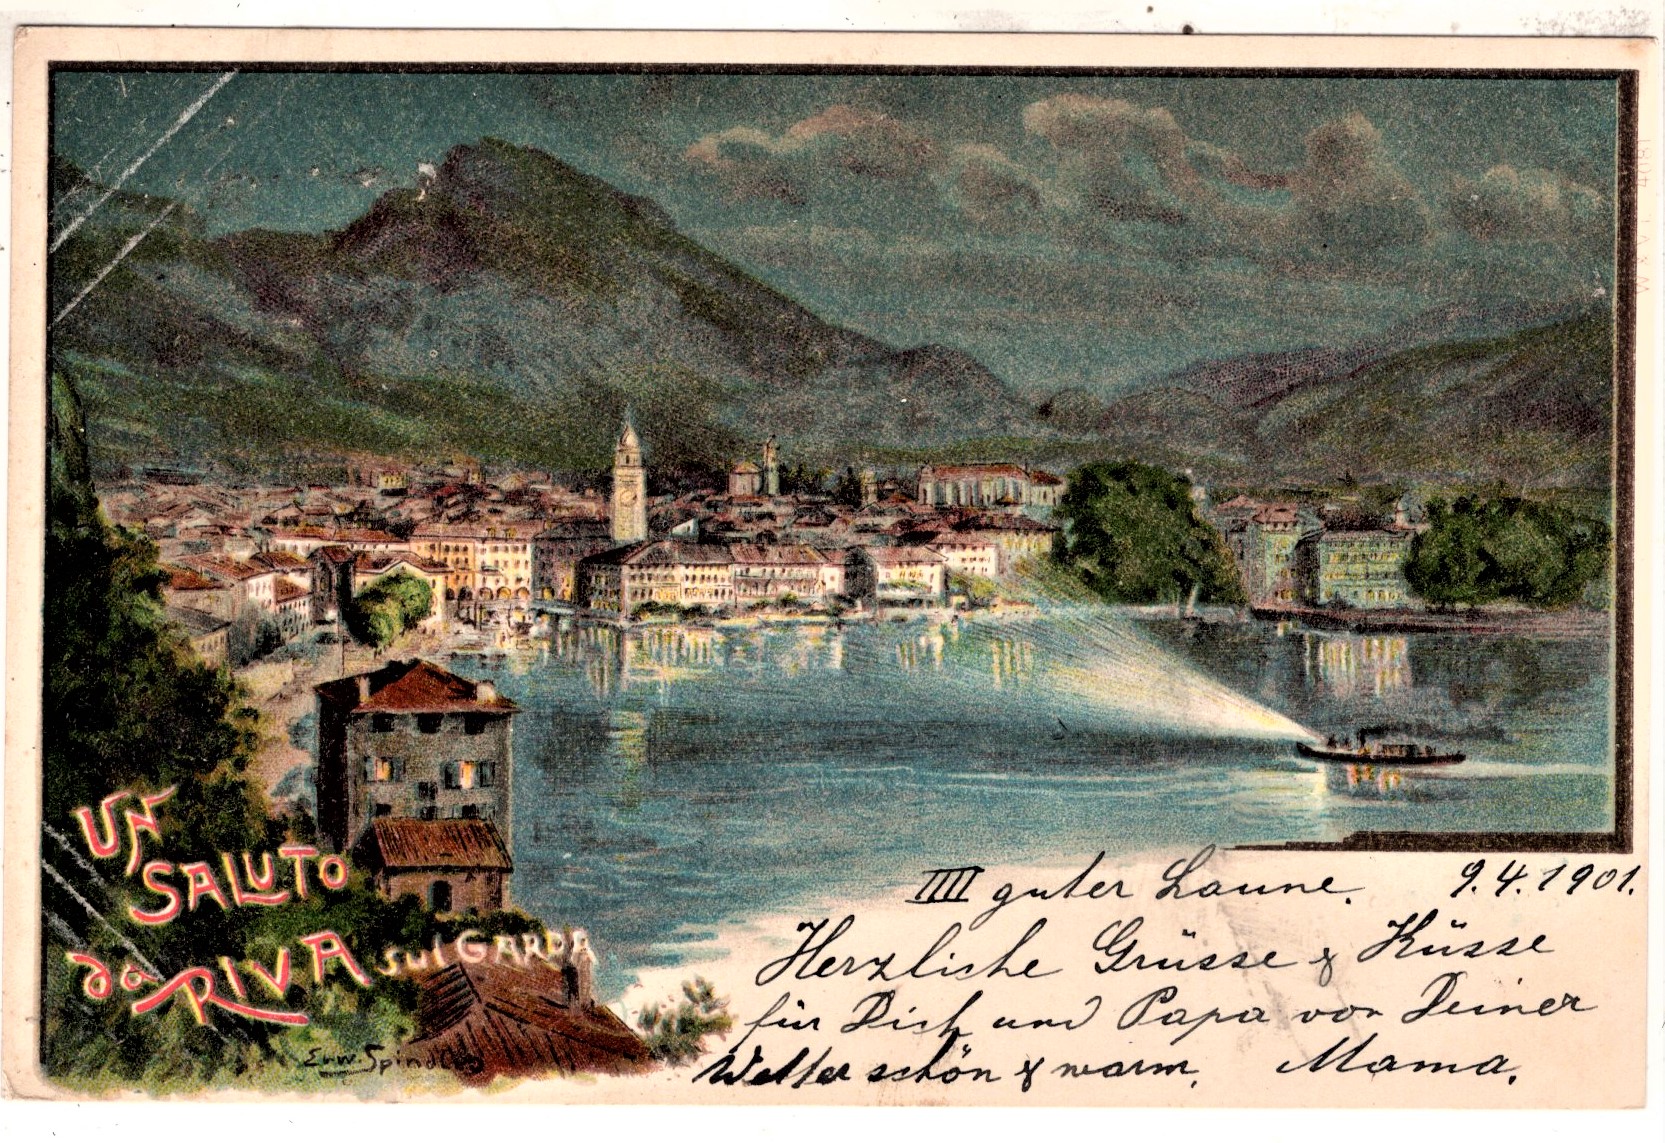 UN
SALUTO
da RIVA sul GARDA
Erw. Spindler
IIII guter Laune. 9.4.1901.
Herzliche Grüsse & Küsse
für Dich und Papa von Deiner
Wetter schön & warm. Mama.